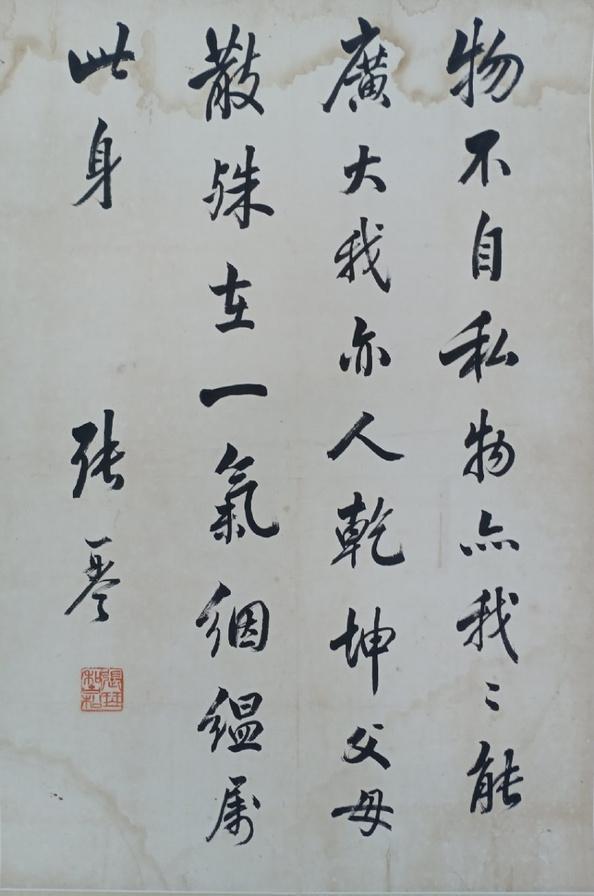 物不自私物亦我々能
廣大我亦人乾坤父母
散殊在一氣絪縕屬
此身
張琴